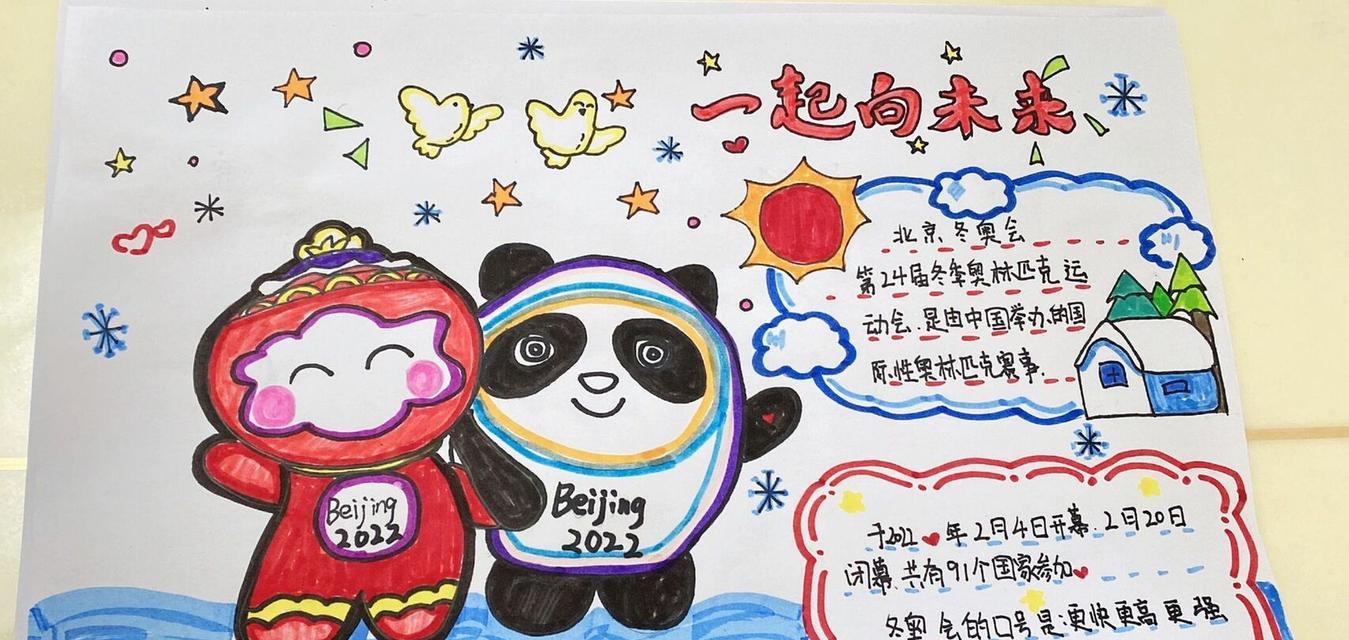 一起向未来
北京冬奥会
第24届冬季奥林匹克运
动会.是由中国举办的国
际性奥林匹克赛事.
Beijing
2022
Beijing
2022
于2022年2月4日开幕.2月20日
闭幕.共有91个国家参加
冬奥会的口号是:更快更高更强